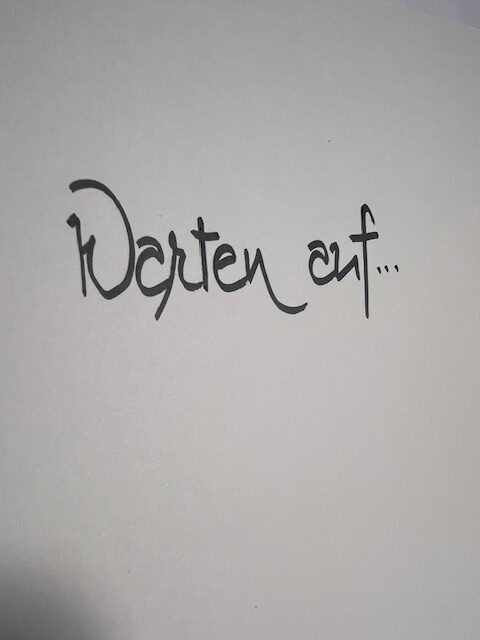 Warten auf...